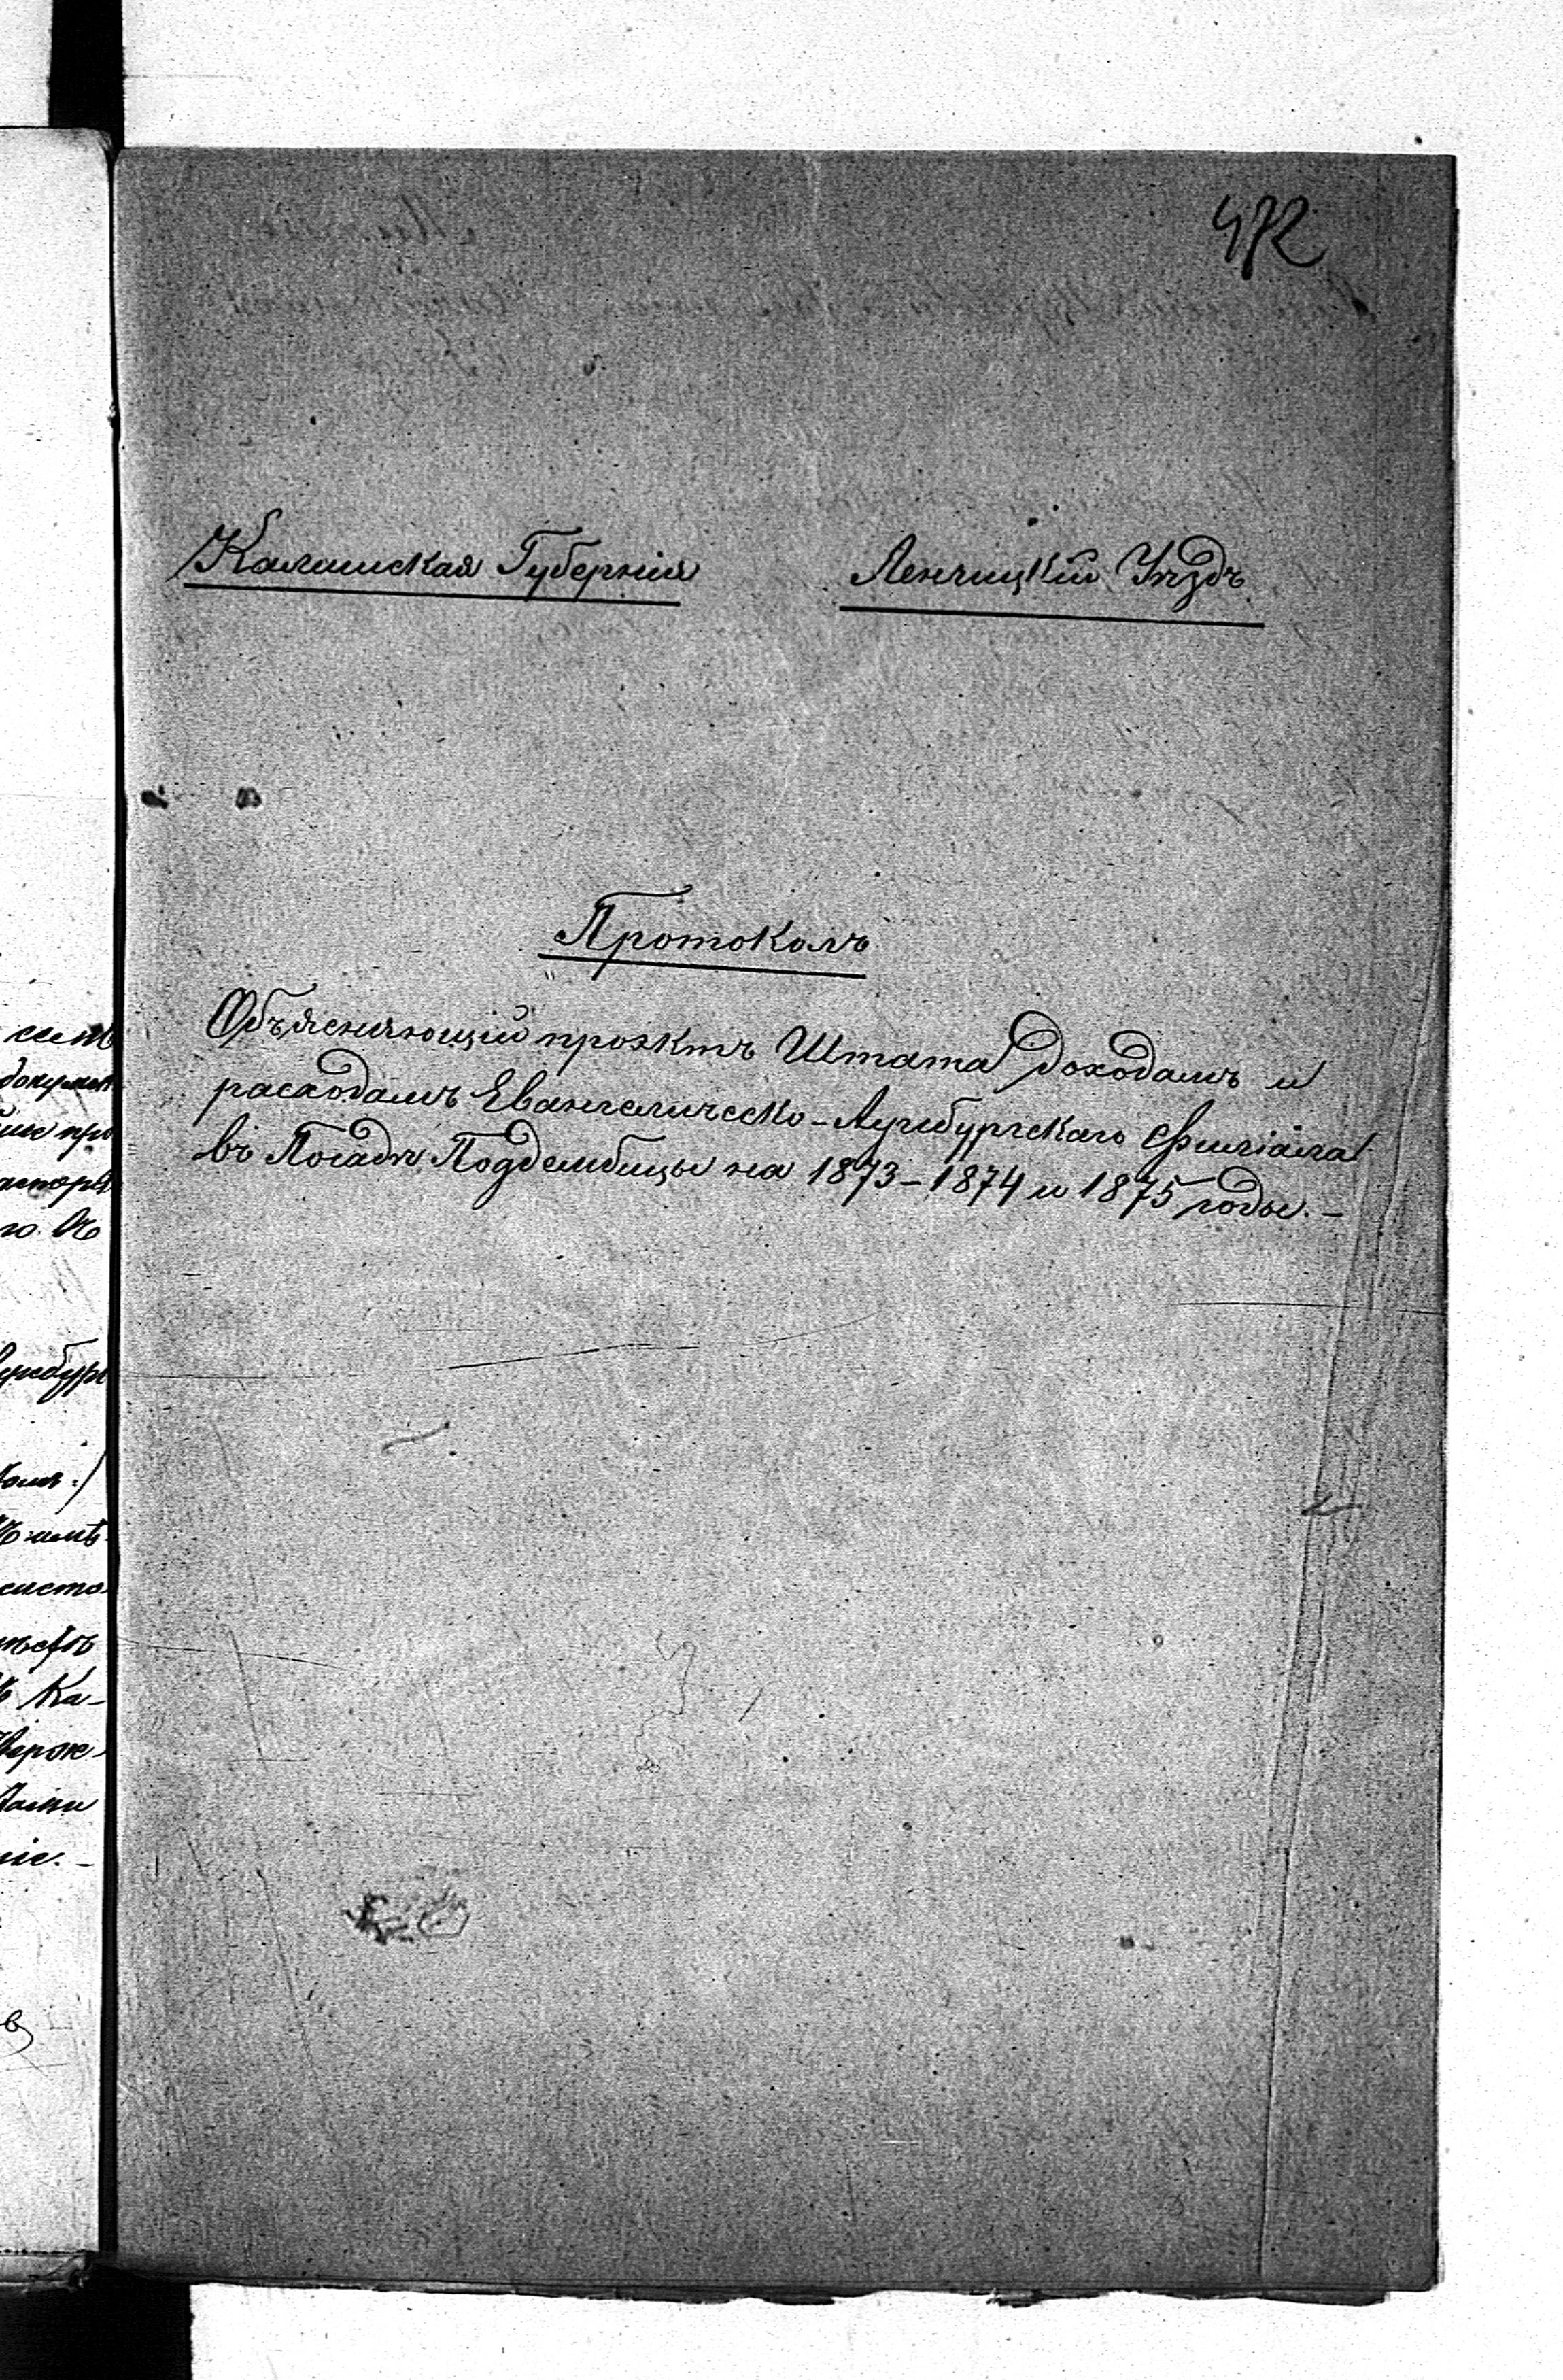 472
Калишская Губернія Ленчицкій Уѣздъ
Протоколъ
Объясняющій проэктъ Штата доходамъ и
расходамъ Евангелическо-Аугсбургскаго Филіала
въ Посадѣ Поддембицы на 1873-1874 и 1875 годы.-